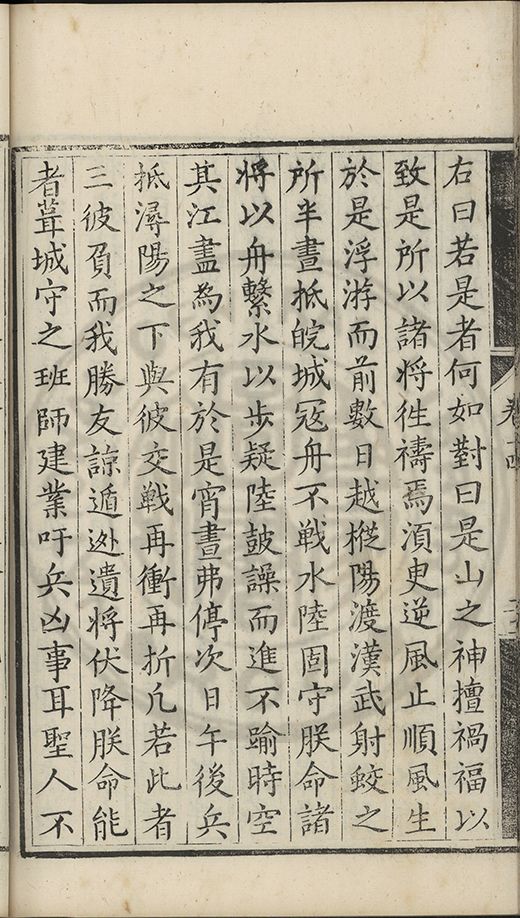 右曰若是者何如對曰是山之神擅禍福以
致是所以諸將徃禱焉湏吏逆風止順風生
於是浮游而前數日越樅陽渡漢武射蛟之
所半晝抵皖城冦舟不戰水陸固守朕命諸
將以舟繫水以步疑陸鼓譟而進不踰時空
其江盡為我有於是宵晝弗停次日午後兵
抵潯陽之下與彼交戰再衝再折凢若此者
三彼負而我勝友諒遁迯遺將伏降朕命能
者葺城守之班師建業吁兵凶事耳聖人不